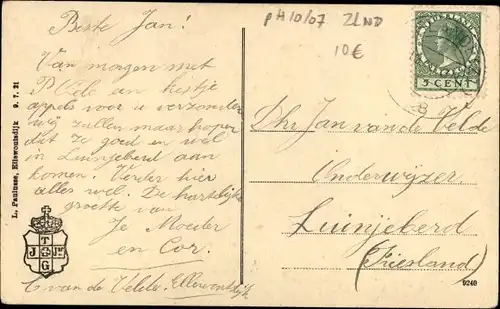 Beste Jan!
Van morgen met
P. Eele een kistje
appels voor u verzonden
wij zullen maar hopen
dat ze goed en wel
in Luinjeberd aan
komen. Verder hier
alles wel. De hartelijke
groete van
Je Moeder
en Cor.
C van de Velde. Ellewoutsdijk
L. Paulusse, Ellewoutsdijk 9. 7. 21
T
J J
G
pH10/07 ZLND
10€
NEDERLAND
5 CENT
Dhr Jan van de Velde
Onderwijzer.
Luinjeberd
(Friesland)
9240